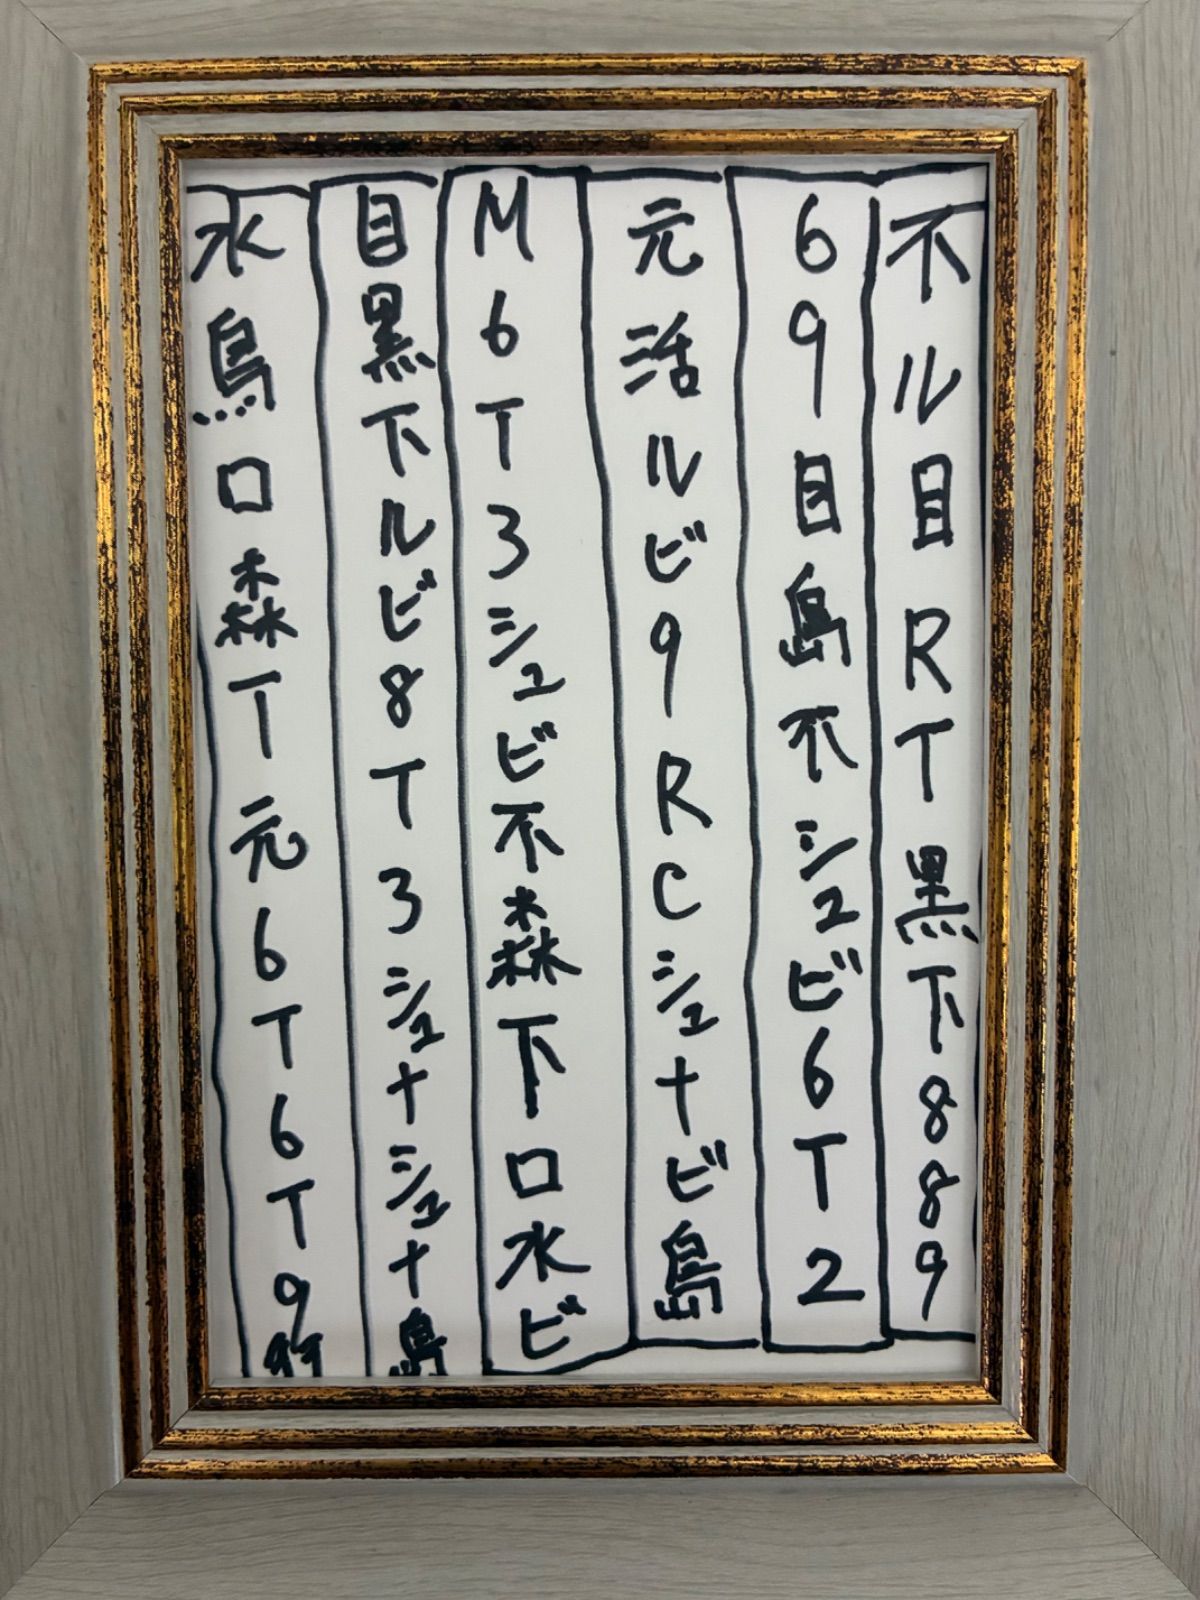 不ル目RT黒下889
69目島不シュビ6T2
元活ルビ9RCシュナビ島
M6T3シュビ不森下口水ビ
目黒下ルビ8T3シュナシュナ島
水鳥口森T元6T6T9